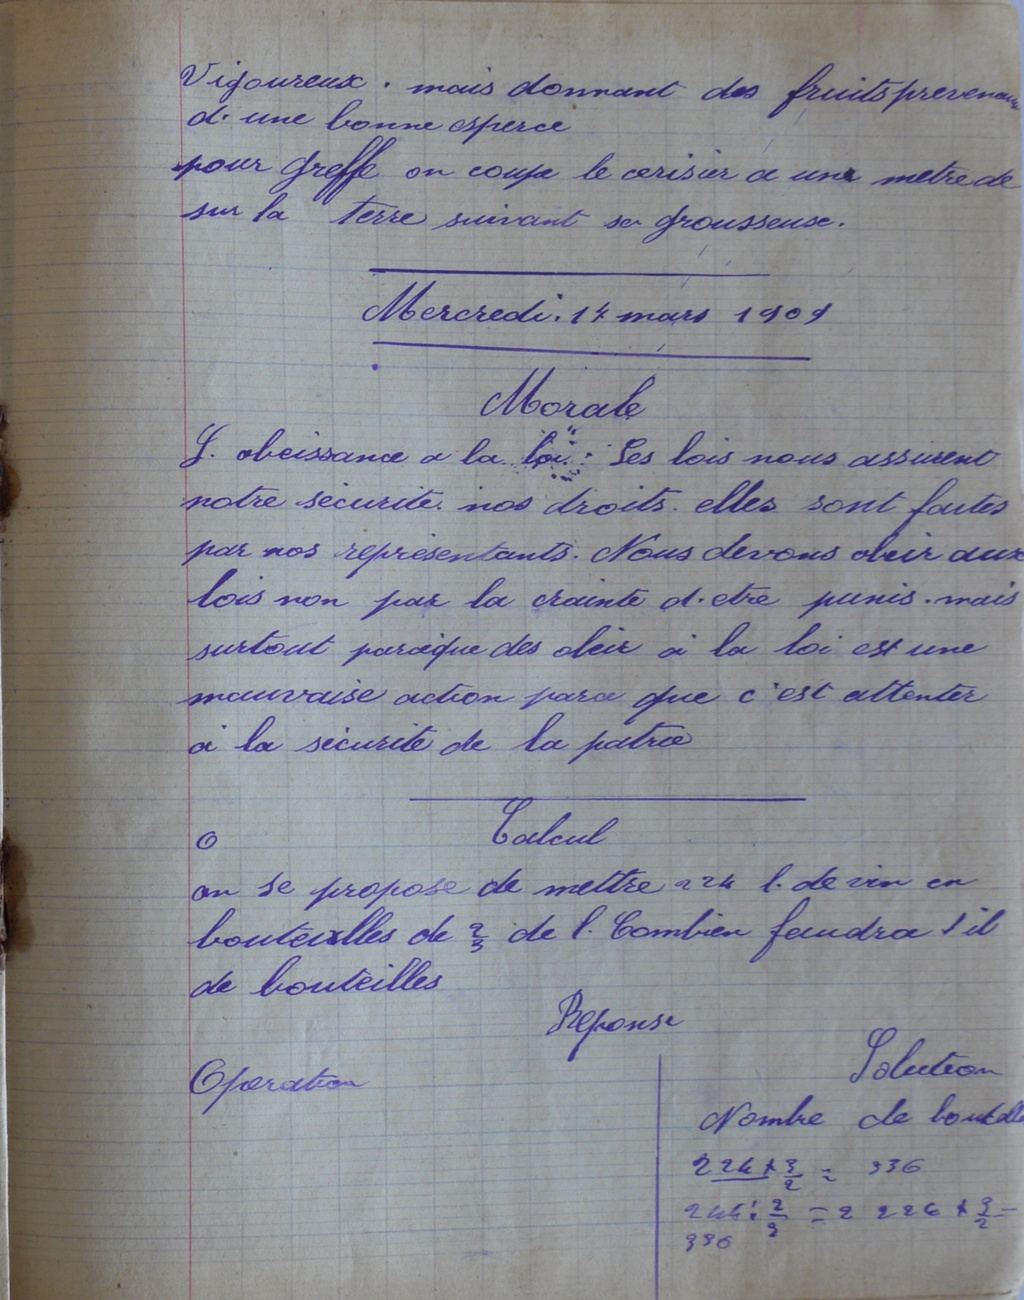 Vigoureux. mais donnant des fruits prevenant
d. une bonne esperce
pour greffe on coupe le cerisier a une metre de
sur la terre suivant sa grousseuse.
Mercredi. 17 mars 1909
Morale
L. obeissance a la loi: Les lois nous assurent
notre sécurité. nos droits. elles sont faites
par nos représentants. Nous devons obeir aux
lois non par la crainte d. etre punis. mais
surtout parceque des obeir à la loi est une
mauvaise action parce que c'est attenter
à la sécurité de la patrie
Calcul
O
on se propose de mettre 224 l. de vin en
bouteilles de 2/3 de l. Combien faudra t il
de bouteilles
Réponse
Opération
Solution
Nombre de bouteilles
224 x 3/2 = 336
244 : 2/3 = 2 224 x 3/2 =
336